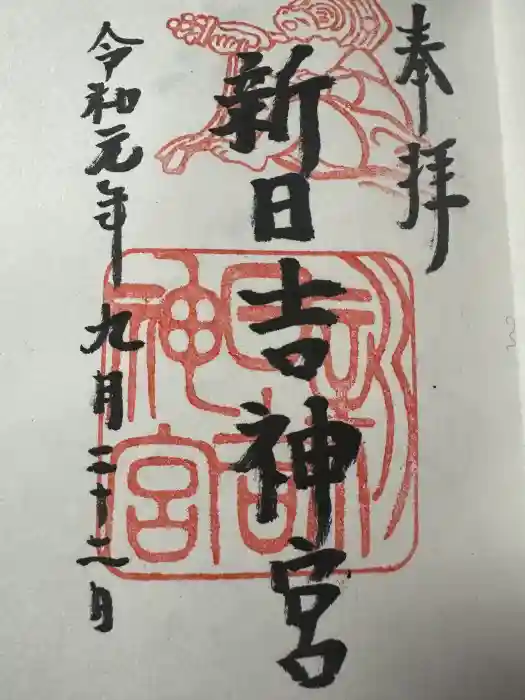 奉拝
新日吉神宮
令和元年九月二十二日